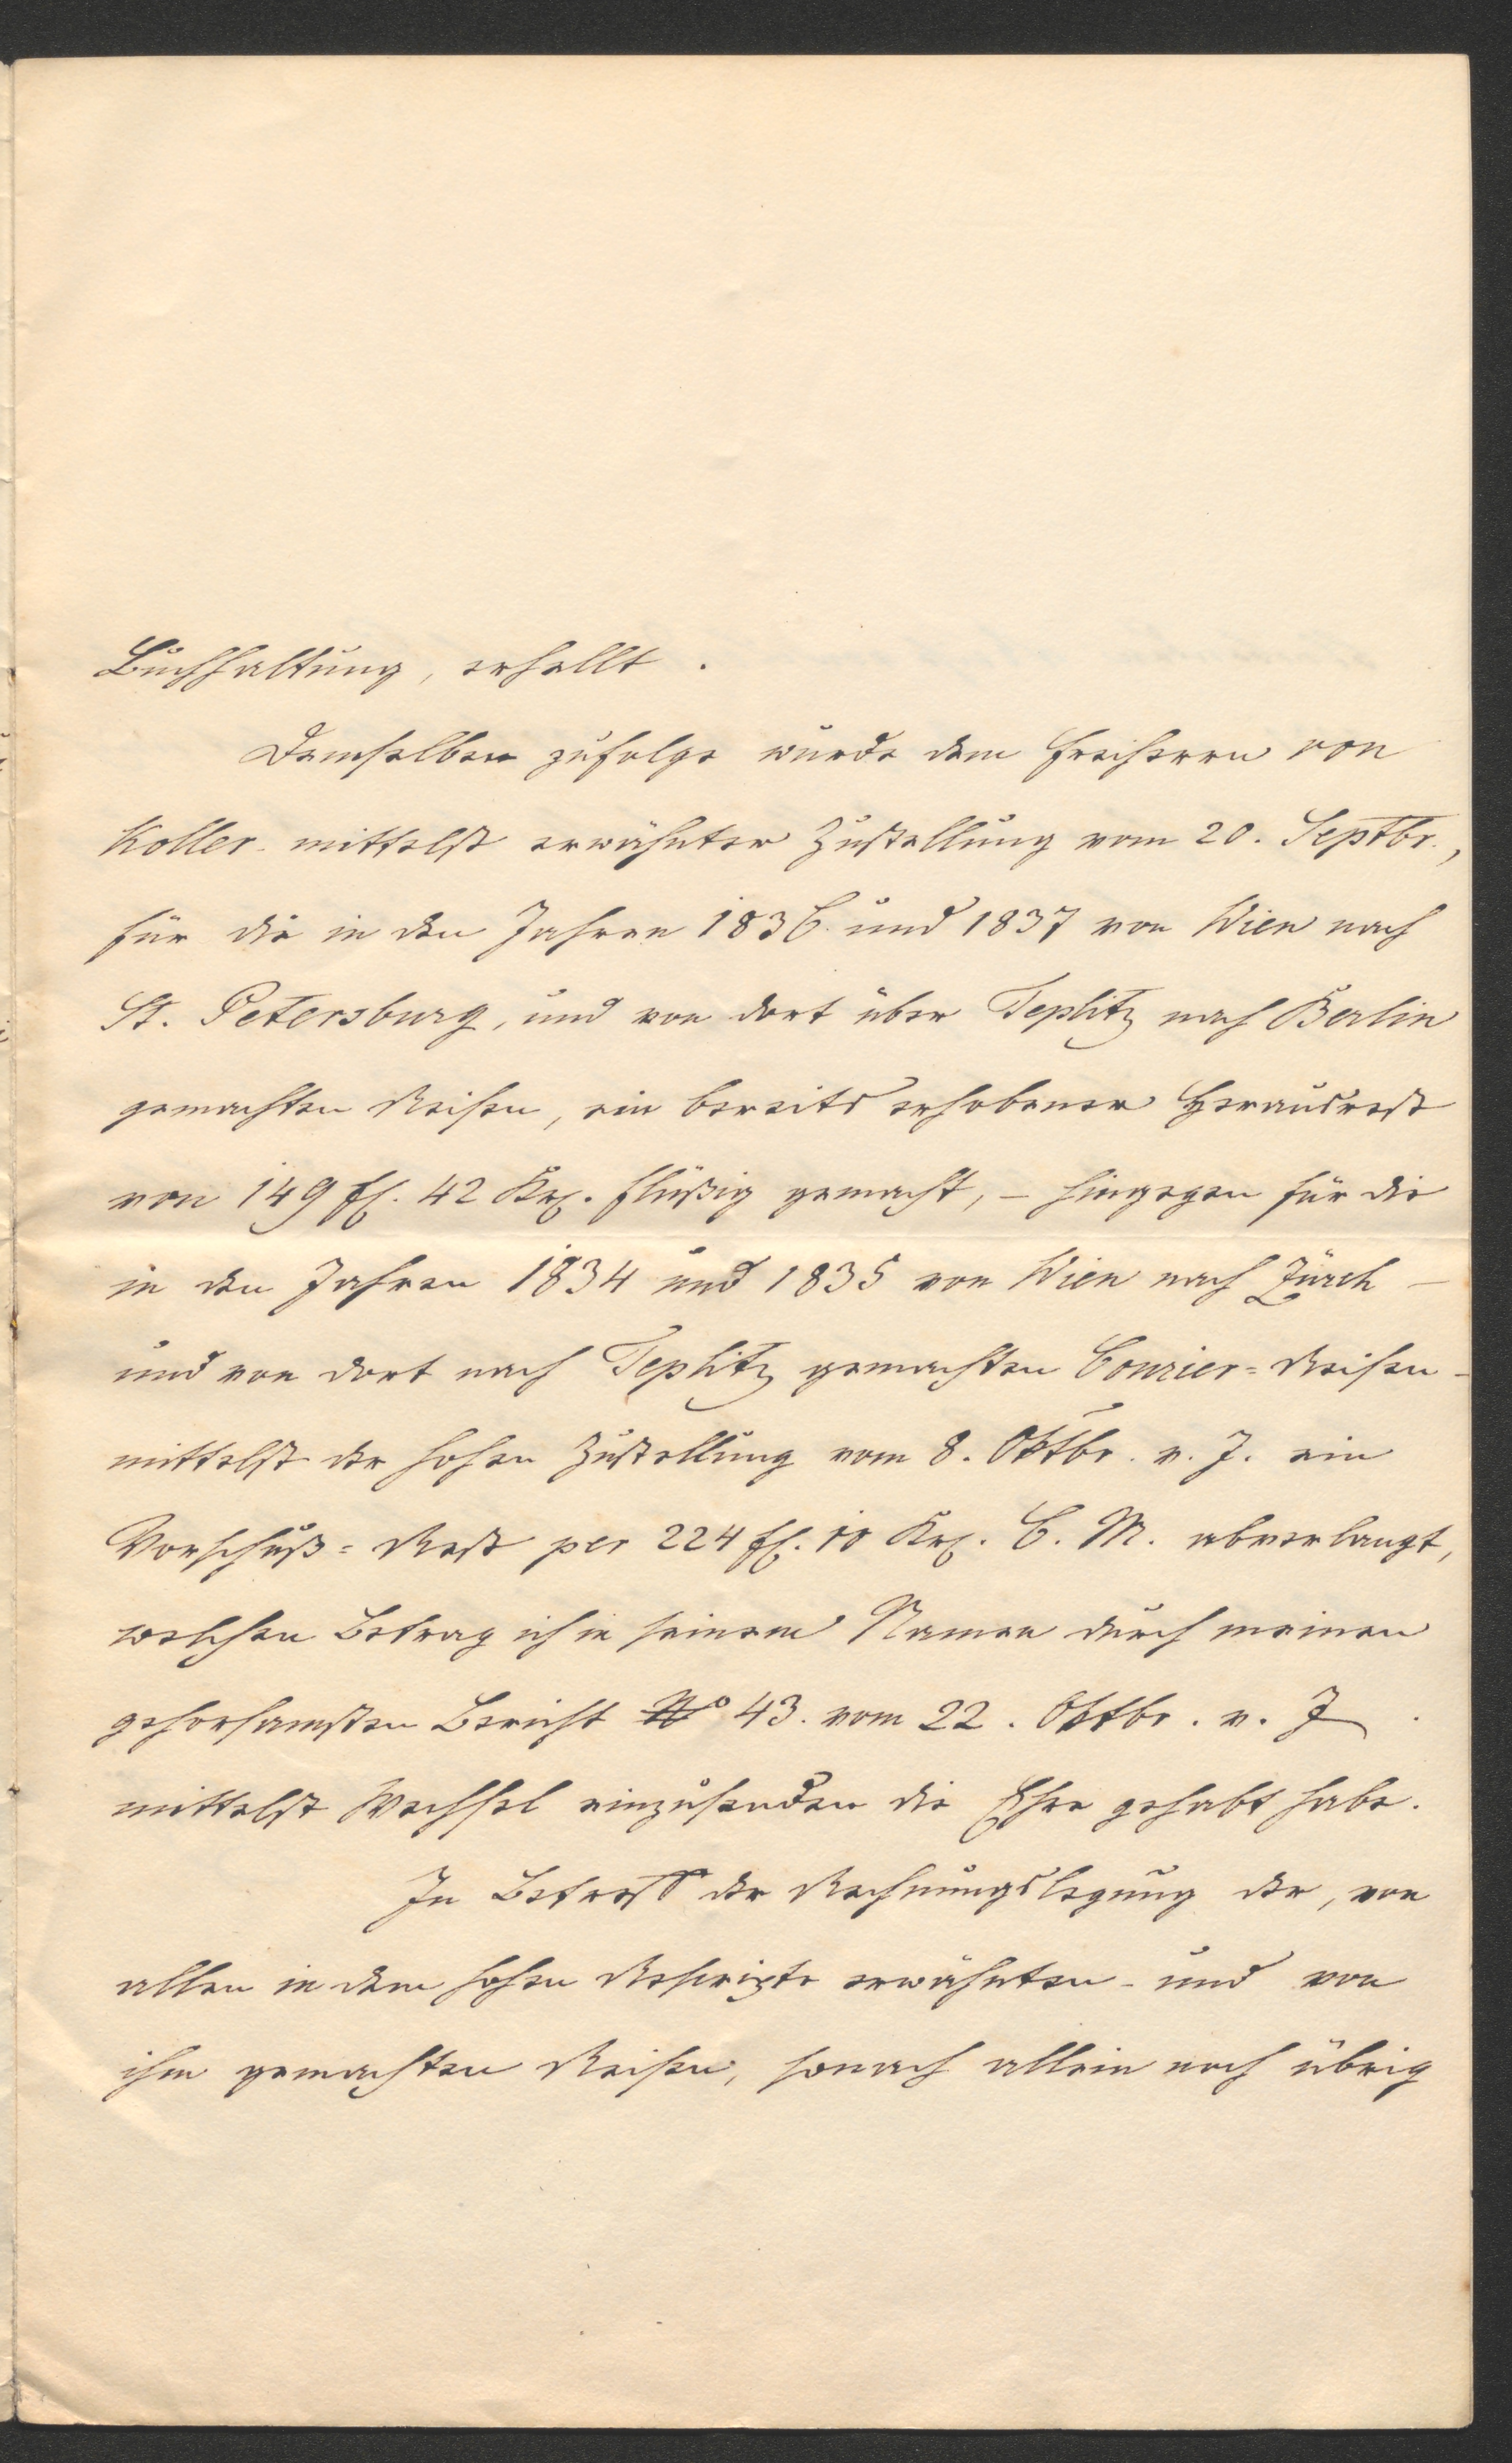 Buchhaltung, erhellt.
Demselben zufolge wurde dem Freiherrn von
Koller mittelst erwähnter Zustellung vom 20. Septbr.,
für die in den Jahren 1836 und 1837 von Wien nach
St. Petersburg, und von dort über Teplitz nach Berlin
gemachten Reisen, ein bereits erhobener Herausrest
von 149 fl. 42 Krz. flüßig gemacht, – hingegen für die
in den Jahren 1834 und 1835 von Wien nach Zürch –
und von dort nach Teplitz gemachten Courier= Reisen –
mittelst der hohen Zustellung vom 8. Oktbr. v. J. ein
Vorschuß= Rest per 224 fl. 10 Krz. C. M. abverlangt,
welchen Betrag ich in seinem Namen durch meinen
gehorsamsten Bericht No 43. vom 22. Oktbr. v. J.
mittelst Wechsel einzusenden die Ehre gehabt habe.
In Betreff der Rechnungslegung der, von
allen in dem hohen Rescripte erwähnten – und von
ihm gemachten Reisen, sonach allein noch übrig